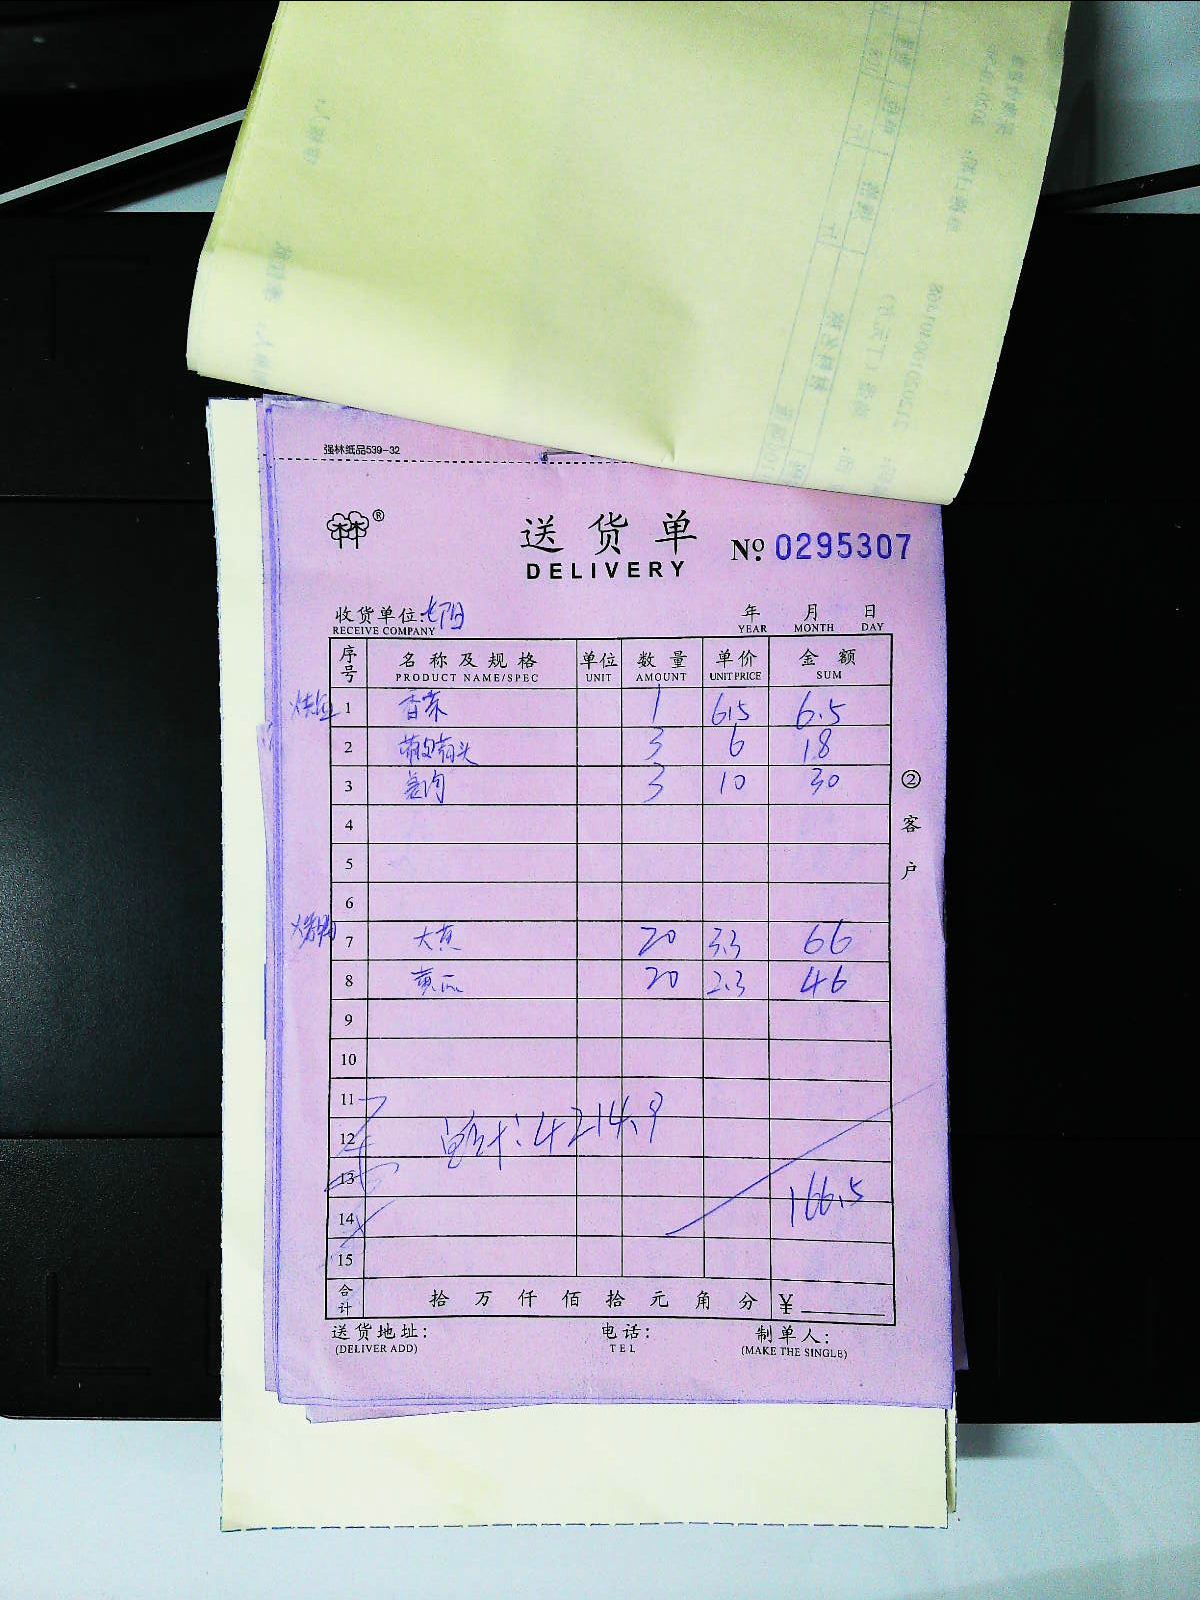 强林纸品539-32
林林®
送货单 № 0295307
DELIVERY
收货单位: 年 月 日
RECEIVE COMPANY YEAR MONTH DAY
序号 名称及规格 单位 数量 单价 金额
PRODUCT NAME/SPEC UNIT AMOUNT UNIT PRICE SUM
1 香菜 1 6.5 6.5
2 3 6 18
3 3 10 30
4
5
6
7 大葱 20 3.3 66
8 黄瓜 20 2.3 46
9
10
11
12 总计:4214.9
13
166.5
14
15
合计 拾万仟佰拾元角分 ¥
送货地址: 电话: 制单人:
(DELIVER ADD) TEL (MAKE THE SINGLE)
②客户